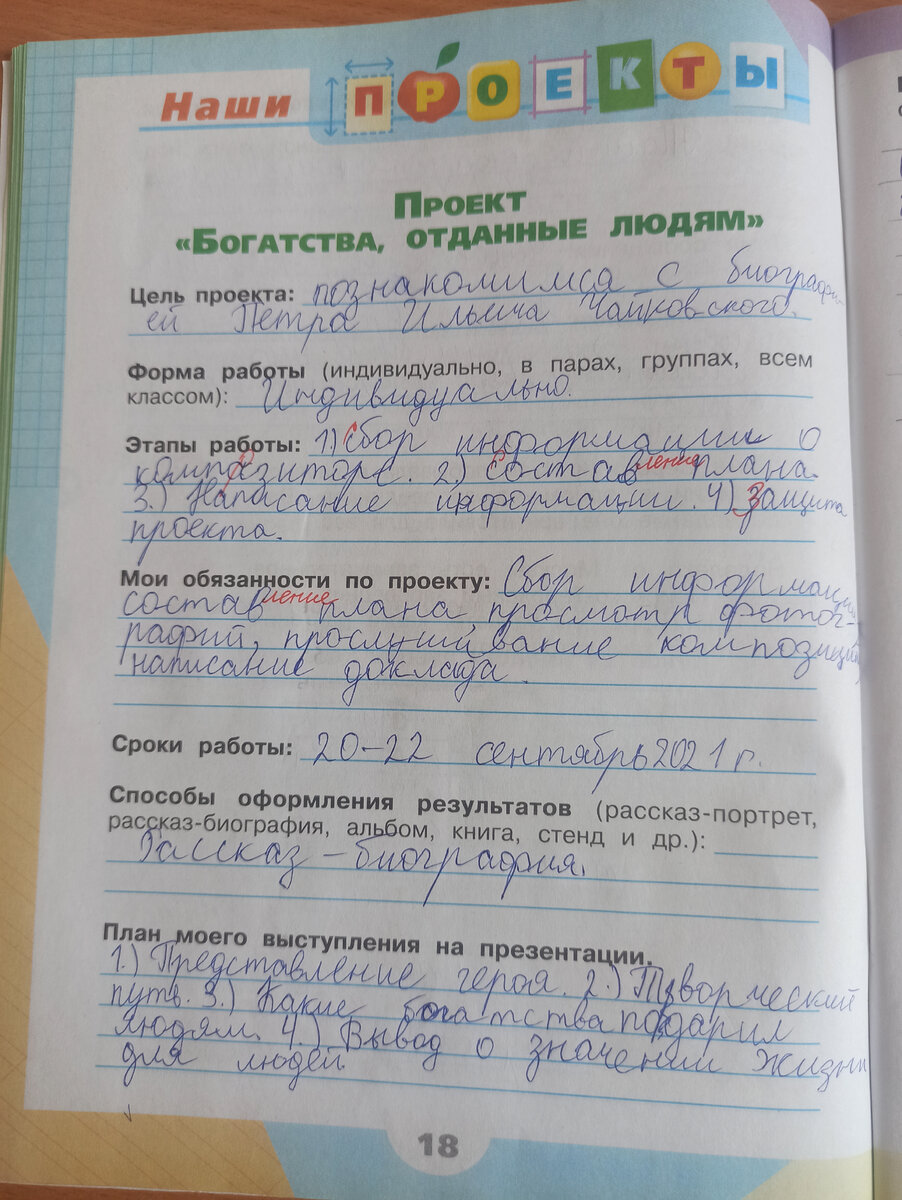 Наши ПРОЕКТЫ
ПРОЕКТ
«БОГАТСТВА, ОТДАННЫЕ ЛЮДЯМ»
Цель проекта: познакомимся с биографи
ей Петра Ильича Чайковского.
Форма работы (индивидуально, в парах, группах, всем
классом): Индивидуально.
Этапы работы: 1) Сбор информации о
композиторе. 2) Составление плана.
3.) Написание информации. 4) Защита
проекта.
Мои обязанности по проекту: Сбор информации,
составление плана, просмотр фотог-
рафий, прослушивание композиций,
написание доклада.
Сроки работы: 20-22 сентябрь 2021 г.
Способы оформления результатов (рассказ-портрет,
рассказ-биография, альбом, книга, стенд и др.):
Рассказ-биография.
План моего выступления на презентации.
1.) Представление героя. 2.) Творческий
путь. 3.) Какие богатства подарил
людям. 4.) Вывод о значении жизни
для людей.
18